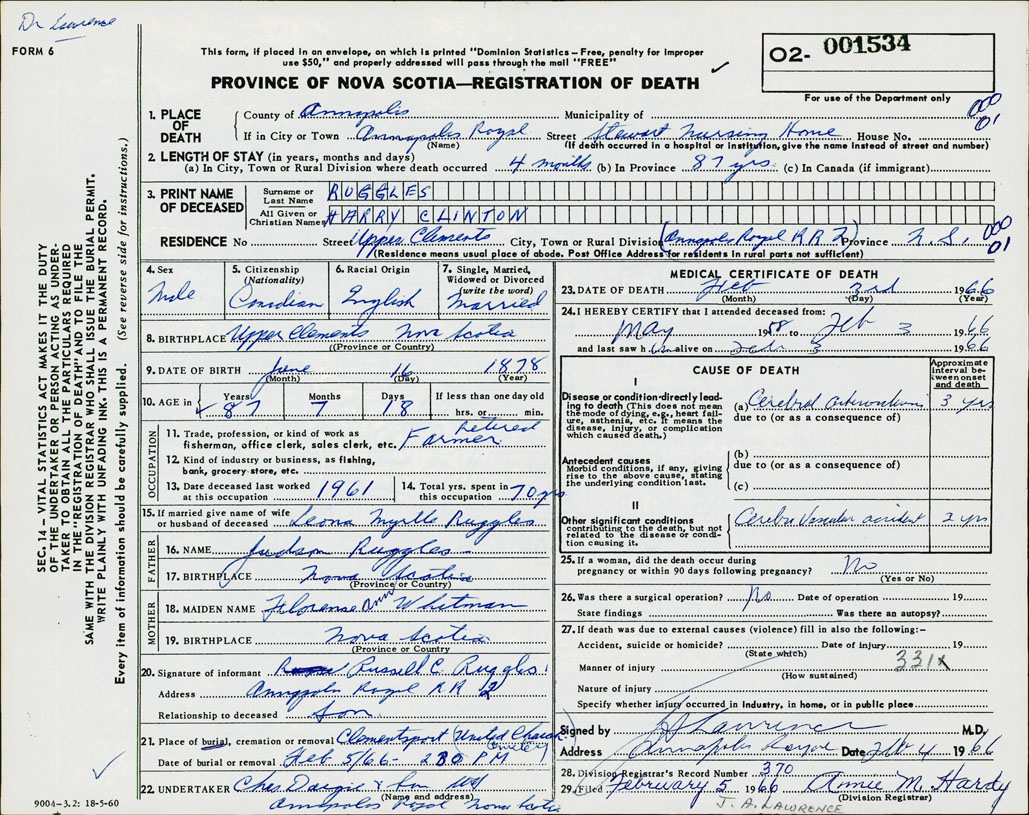 Dr Lawrence
FORM 6
This form, if placed in an envelope, on which is printed "Dominion Statistics – Free, penalty for improper
use $50," and properly addressed will pass through the mail "FREE"
PROVINCE OF NOVA SCOTIA—REGISTRATION OF DEATH ✓
O2- 001534
For use of the Department only
SEC. 14 – VITAL STATISTICS ACT MAKES IT THE DUTY
OF THE UNDERTAKER OR PERSON ACTING AS UNDER-
TAKER TO OBTAIN ALL THE PARTICULARS REQUIRED
IN THE "REGISTRATION OF DEATH" AND TO FILE THE
SAME WITH THE DIVISION REGISTRAR WHO SHALL ISSUE THE BURIAL PERMIT.
WRITE PLAINLY WITH UNFADING INK. THIS IS A PERMANENT RECORD.
Every item of information should be carefully supplied. (See reverse side for instructions.)
1. PLACE OF DEATH
County of Annapolis Municipality of
000
01
If in City or Town Annapolis Royal Street Stewart Nursing Home House No.
(Name) (If death occurred in a hospital or institution, give the name instead of street and number)
2. LENGTH OF STAY (in years, months and days)
(a) In City, Town or Rural Division where death occurred 4 months (b) In Province 87 yrs. (c) In Canada (if immigrant)
3. PRINT NAME OF DECEASED
Surname or Last Name RUGGLES
All Given or Christian Names HARRY CLINTON
RESIDENCE No Street Upper Clements City, Town or Rural Division (Annapolis Royal R R 2) Province N. S.
000
01
(Residence means usual place of abode. Post Office Address for residents in rural parts not sufficient)
4. Sex
Male
5. Citizenship
(Nationality)
Canadian
6. Racial Origin
English
7. Single, Married,
Widowed or Divorced
(write the word)
Married
8. BIRTHPLACE Upper Clements Nova Scotia
(Province or Country)
9. DATE OF BIRTH June 16 1878
(Month) (Day) (Year)
10. AGE in ✓ Years Months Days If less than one day old
87 7 18 hrs. or min.
OCCUPATION
11. Trade, profession, or kind of work as
fisherman, office clerk, sales clerk, etc. Retired Farmer
12. Kind of industry or business, as fishing,
bank, grocery store, etc.
13. Date deceased last worked
at this occupation 1961
14. Total yrs. spent in
this occupation 70 yrs
15. If married give name of wife
or husband of deceased Leona Myrtle Ruggles
FATHER
16. NAME Judson Ruggles
17. BIRTHPLACE Nova Scotia
(Province or Country)
MOTHER
18. MAIDEN NAME Florense Ann Whitman
19. BIRTHPLACE Nova Scotia
(Province or Country)
20. Signature of informant Russell C. Ruggles
Address Annapolis Royal R R 2
Relationship to deceased Son
21. Place of burial, cremation or removal Clementsport United Church
Cemetery
Date of burial or removal Feb 5/66 – 2 30 PM
✓
22. UNDERTAKER Chas Dargie & Son
(Name and address)
Annapolis Royal Nova Scotia
9004-3.2: 18-5-60
MEDICAL CERTIFICATE OF DEATH
23. DATE OF DEATH Feb 3rd 1966
(Month) (Day) (Year)
24. I HEREBY CERTIFY that I attended deceased from:
May 1958 to Feb 3 1966
and last saw him alive on Feb 3 1966
CAUSE OF DEATH
Approximate
interval be-
tween onset
and death
I
Disease or condition-directly lead-
ing to death (This does not mean
the mode of dying, e.g., heart fail-
ure, asthenia, etc. It means the
disease, injury, or complication
which caused death.)
(a) Cerebral 3 yrs
due to (or as a consequence of)
Antecedent causes
Morbid conditions, if any, giving
rise to the above cause, stating
the underlying condition last.
(b)
due to (or as a consequence of)
(c)
II
Other significant conditions
contributing to the death, but not
related to the disease or condi-
tion causing it.
Cerebro Vascular accident 2 yrs
25. If a woman, did the death occur during
pregnancy or within 90 days following pregnancy? No
(Yes or No)
26. Was there a surgical operation? No Date of operation 19
State findings Was there an autopsy?
27. If death was due to external causes (violence) fill in also the following:–
Accident, suicide or homicide? Date of injury 19
(State which)
331x
Manner of injury
(How sustained)
Nature of injury
Specify whether injury occurred in Industry, in home, or in public place
Signed by Lawrence M.D.
Address Annapolis Royal Date Feb 4 1966
28. Division Registrar's Record Number 370
29. Filed February 5 1966 Annie M. Hardy
(Division Registrar)
J. A. LAWRENCE